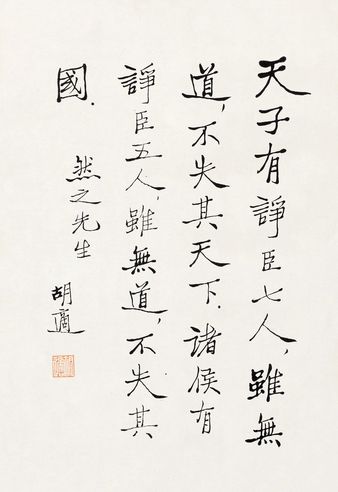 天子有諍臣七人，雖無
道，不失其天下．諸侯有
諍臣五人，雖無道，不失其
國．
然之先生
胡適